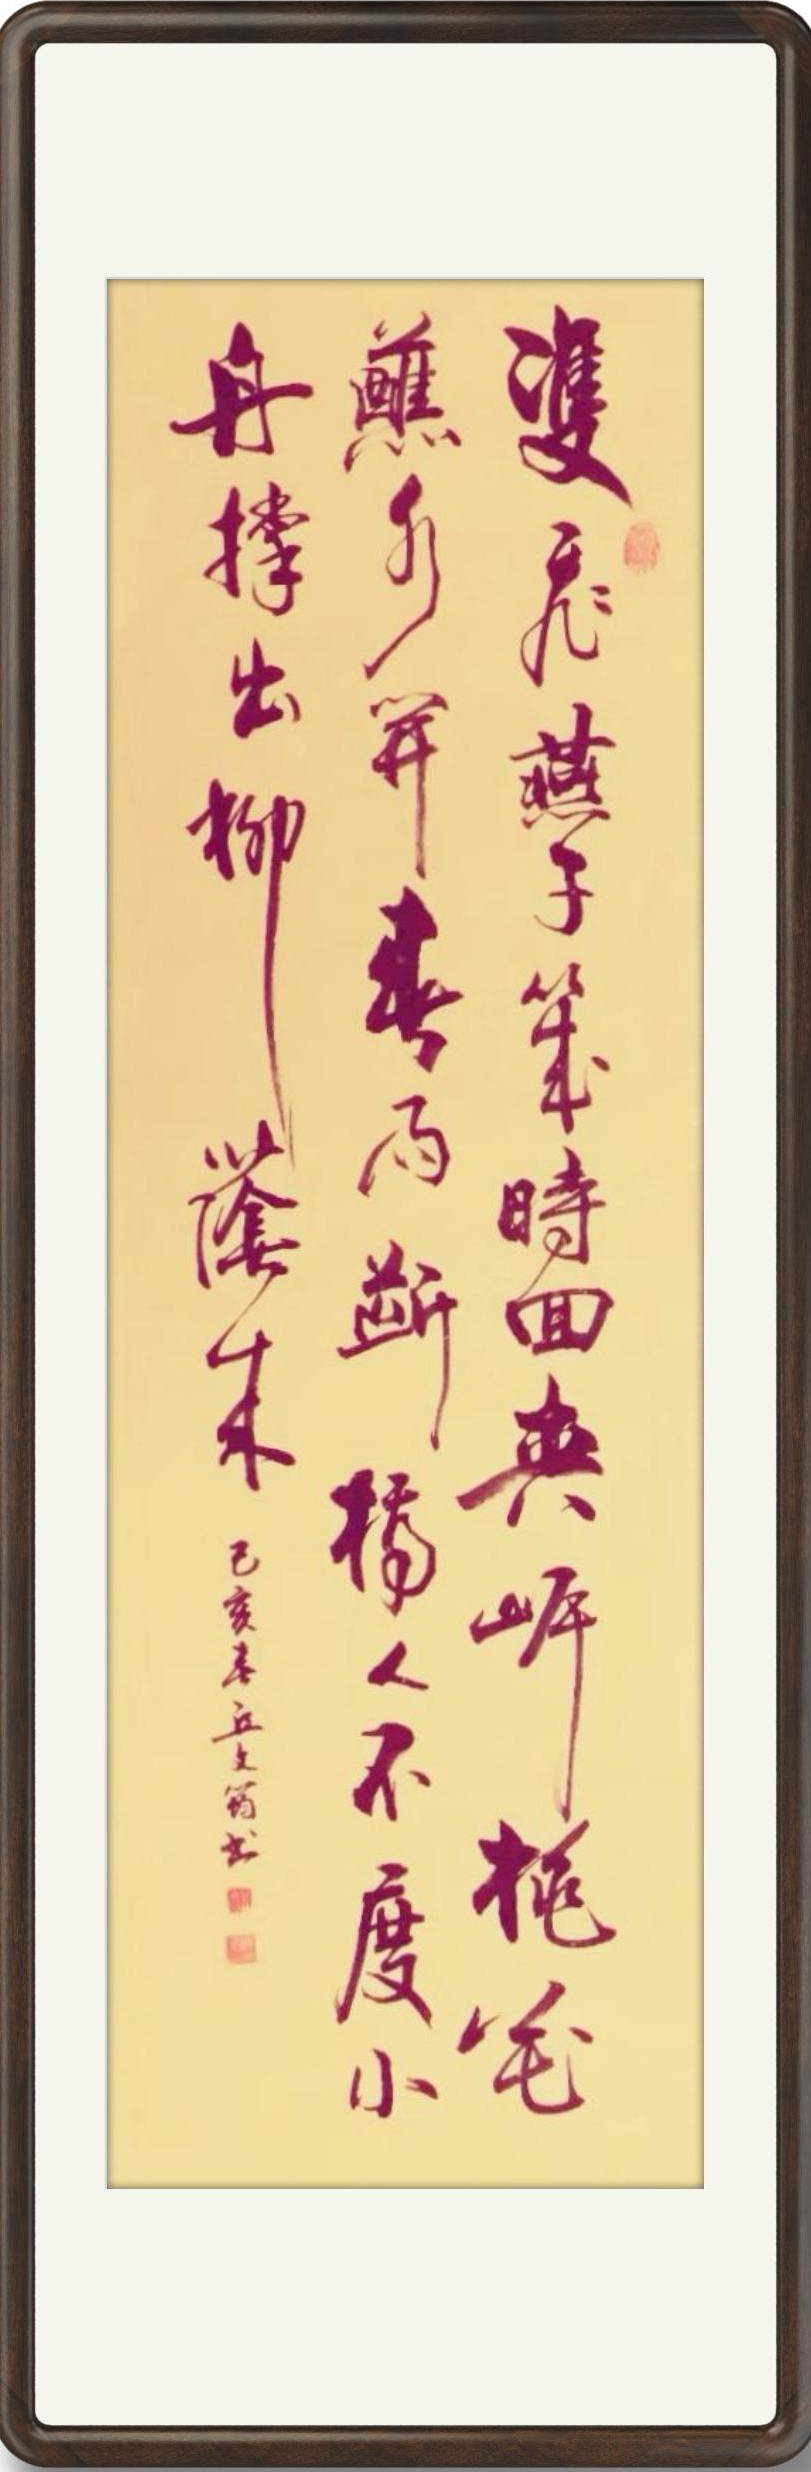 雙飛燕子幾時回夾岸桃花
蘸水開春雨斷橋人不度小
舟撐出柳蔭來
己亥春丘文筠书